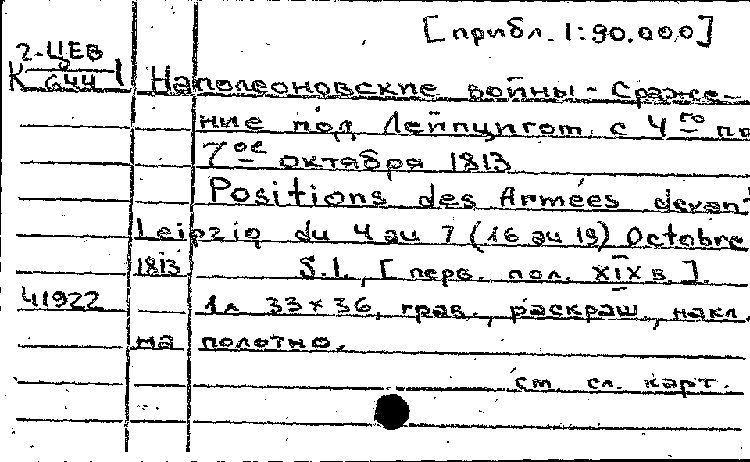 [прибл. 1:90.000]
2-ЦЕВ
К 8/644 1 Наполеоновские войны - Сраже-
ние под Лейпцигом с 4го по
7ое октября 1813
Positions des Armées devant
Leipzig du 4 au 7 (16 au 19) Octobre
1813 S.l., [перв. пол. XIX в.].
41922 1л 33×36, грав., раскраш., накл.
на полотно.
см сл. карт.